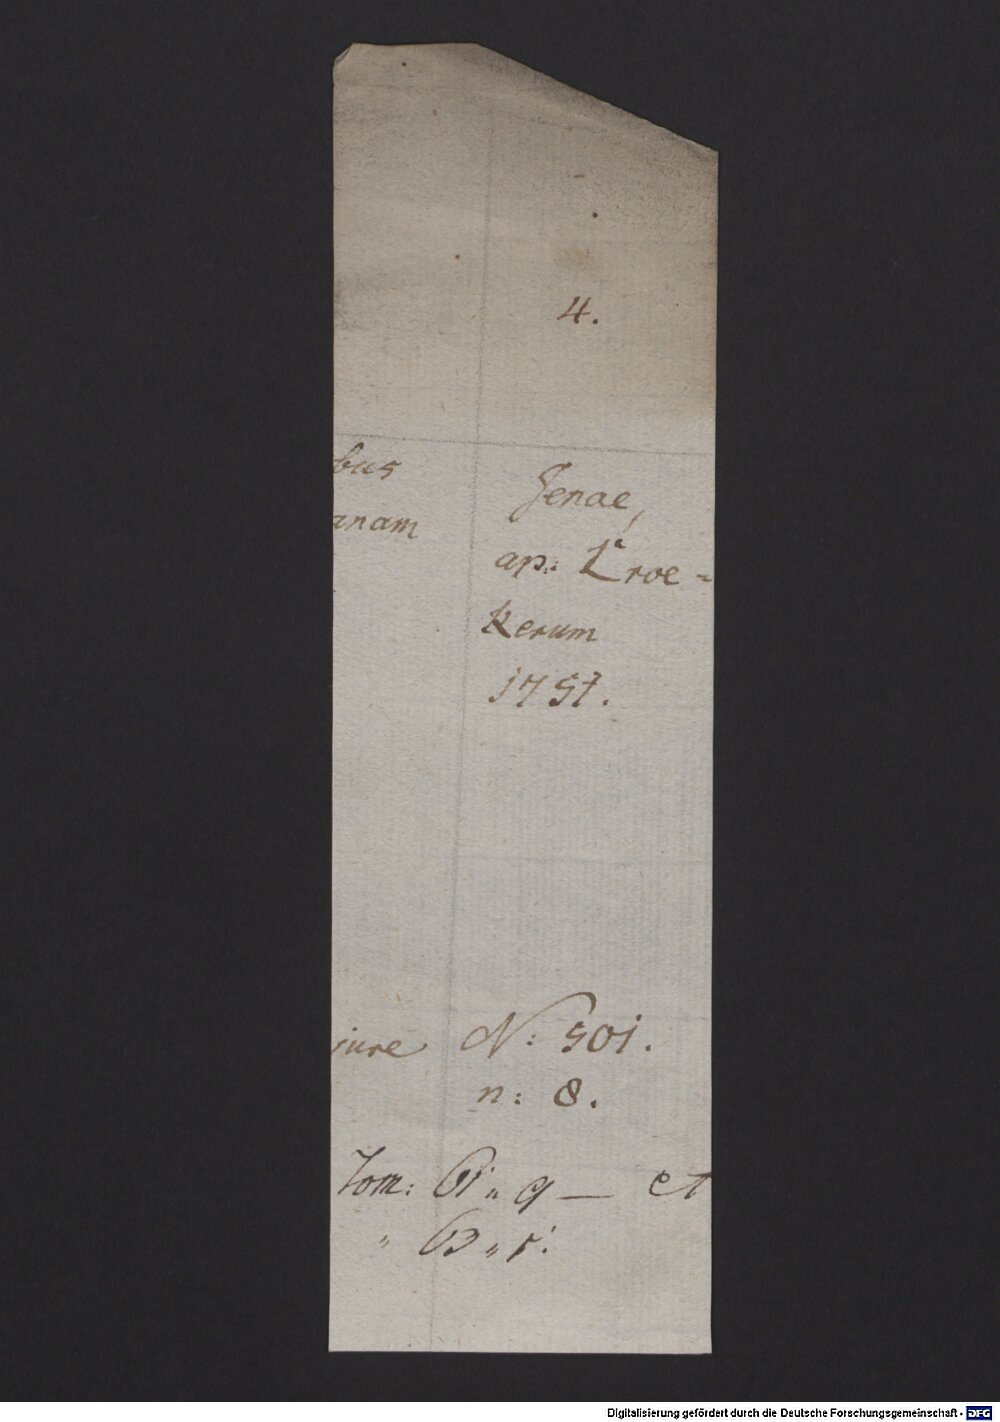 4.
bus
anam
Jenae,
ap: Croe-
kerum
1751.
jure N: 501.
n: 8.
Tom: 61 " 9 — et
" 63 "
Digitalisierung gefördert durch die Deutsche Forschungsgemeinschaft - DFG